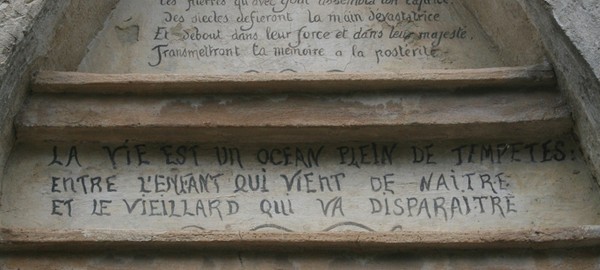 Les pierres qu'avec goût assembla ton caprice,
Des siècles défieront la main dévastatrice
Et debout dans leur force et dans leur majesté,
Transmettront ta mémoire a la postérité
LA VIE EST UN OCEAN PLEIN DE TEMPETES:
ENTRE L'ENFANT QUI VIENT DE NAITRE
ET LE VIEILLARD QUI VA DISPARAITRE